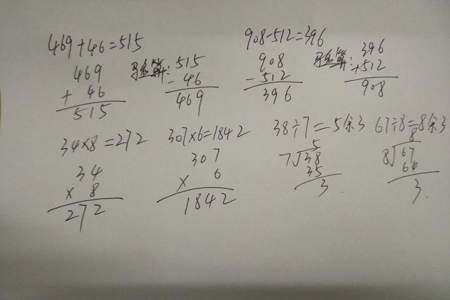 469+46=515
469
+ 46
515
验算:
515
- 46
469
908-512=396
908
-512
396
验算:
396
+512
908
34×8=272
34
× 8
272
307×6=1842
307
× 6
1842
38÷7=5余3
5
7 38
35
3
67÷8=8余3
8
8 67
64
3